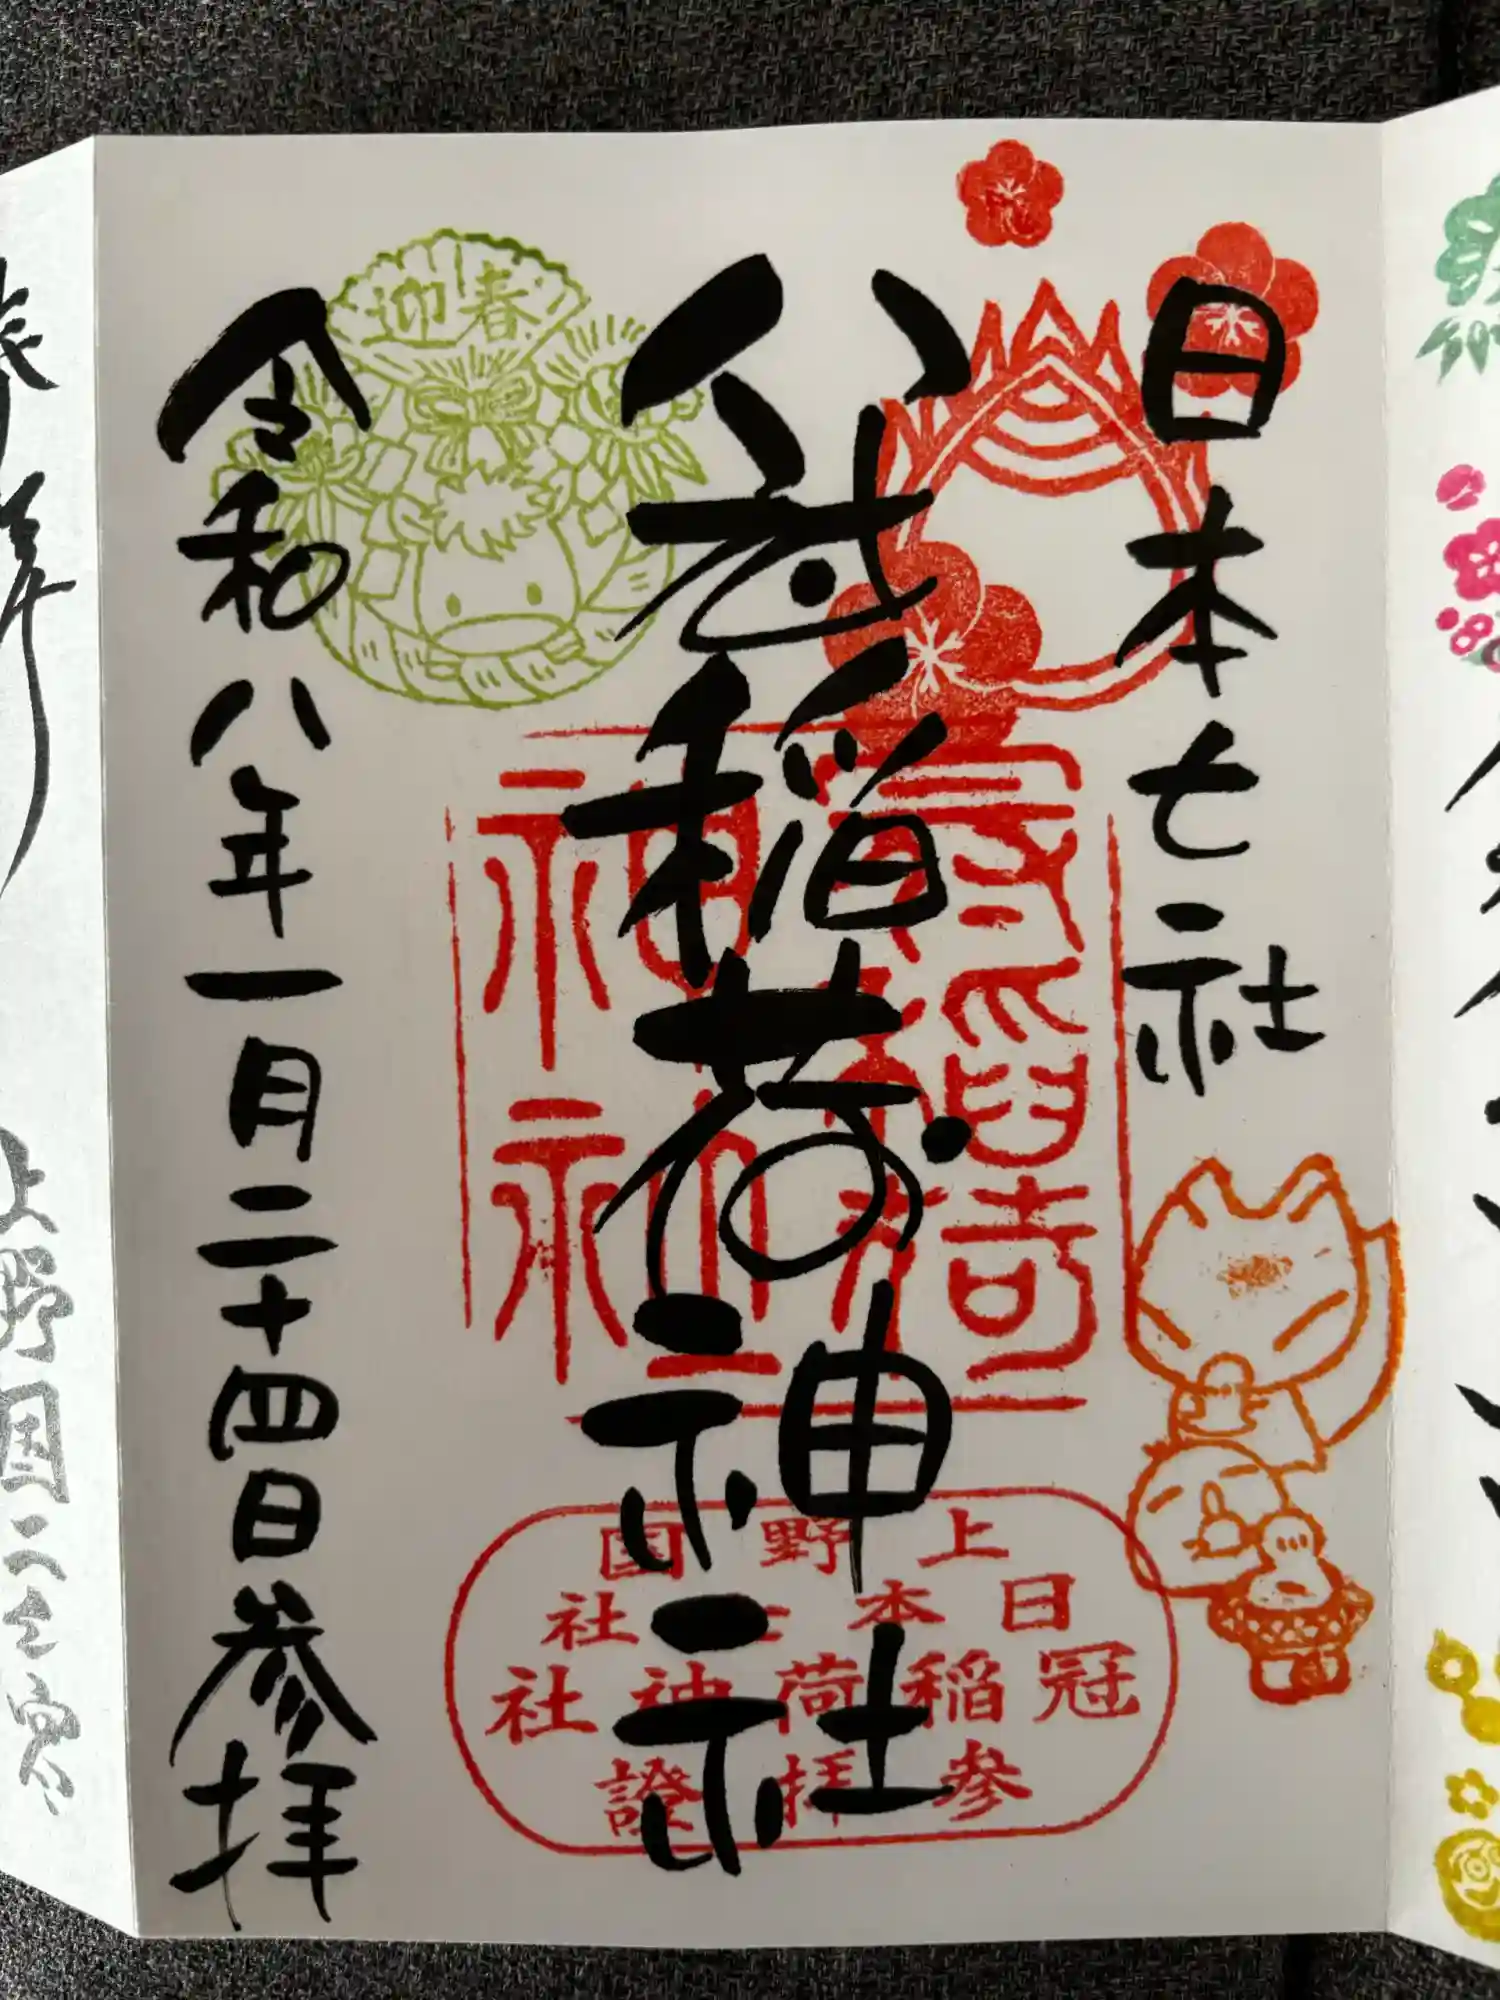 日本七社
冠稲荷神社
迎春
令和八年一月二十四日参拝
上野国
日本七社
冠稲荷神社
参拝證
上野国二之宮